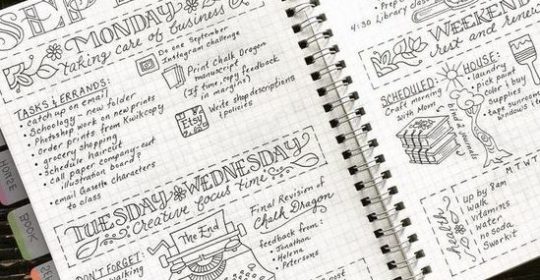 SEP
MONDAY
taking care of business
Do one September
Instagram challenge
Print Chalk Dragon
manuscript
(If time, copy feedback
in margins)
Etsy
Write shop descriptions
& policies
TASKS & ERRANDS:
• catch up on email
• Schoology - new folder
• Photoshop work on new prints
• Order prints from Kwikcopy
• grocery shopping
• Schedule haircut
• Call paper company: cut
illustration board?
• email Gazette characters
to class
TUESDAY WEDNESDAY
creative focus time
DON'T FORGET:
walking
The End
Final Revision of
Chalk Dragon
feedback from:
• Jonathan
• Helena
• Petersons
HOUSE
BOOK
4:30 Library class
WEEKEND
rest and renew
SCHEDULED:
Craft morning
with Mom!
bind 2
journals
HOUSE:
• laundry
• pick paint
color & buy
• Supplies
• tape sunroom
windows &
M T W T
Health
up by 8am
walk
vitamins
water
no soda
Sworkit